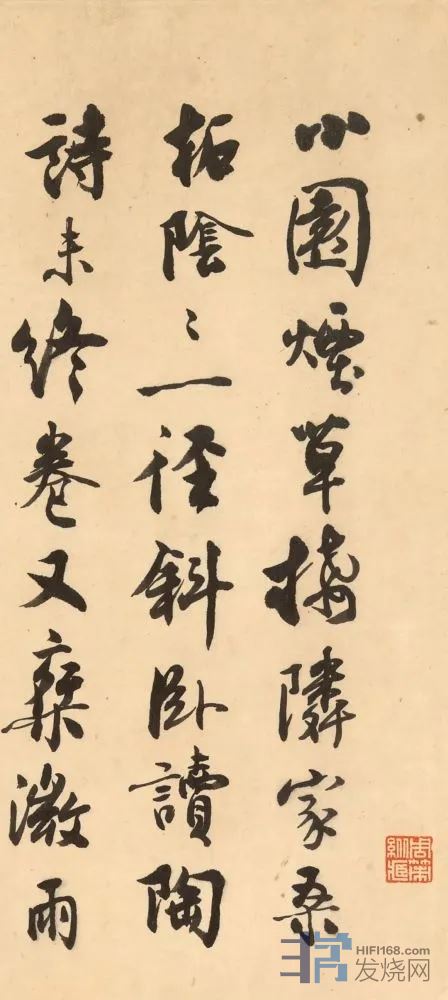 小園煙草接隣家桑
柘陰〻一徑斜卧讀陶
詩未終卷又乘微雨
HIFI168.com
发烧网